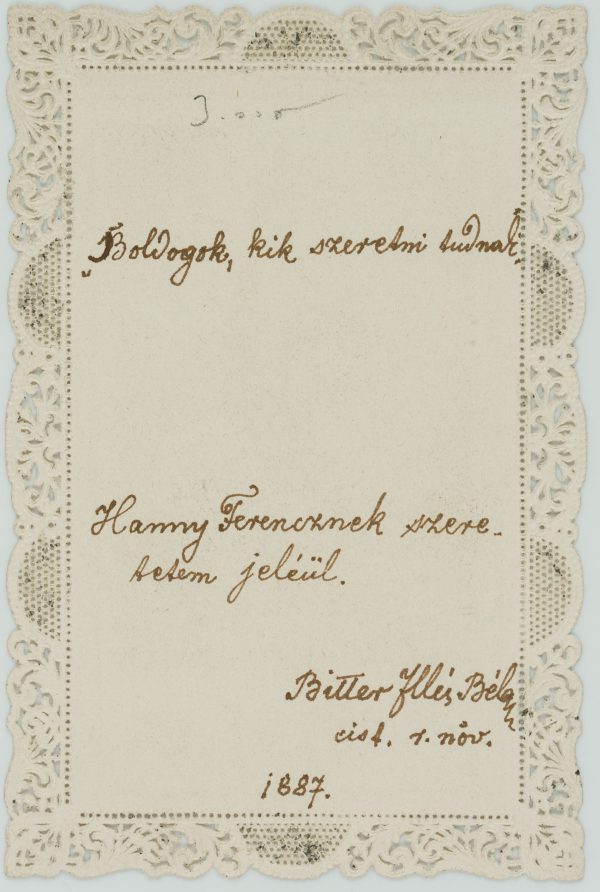 „Boldogok, kik szeretni tudnak"
Hanny Ferencznek szere-
tetem jeléül.
Bitter Illés Béla
cist. r. növ.
1887.